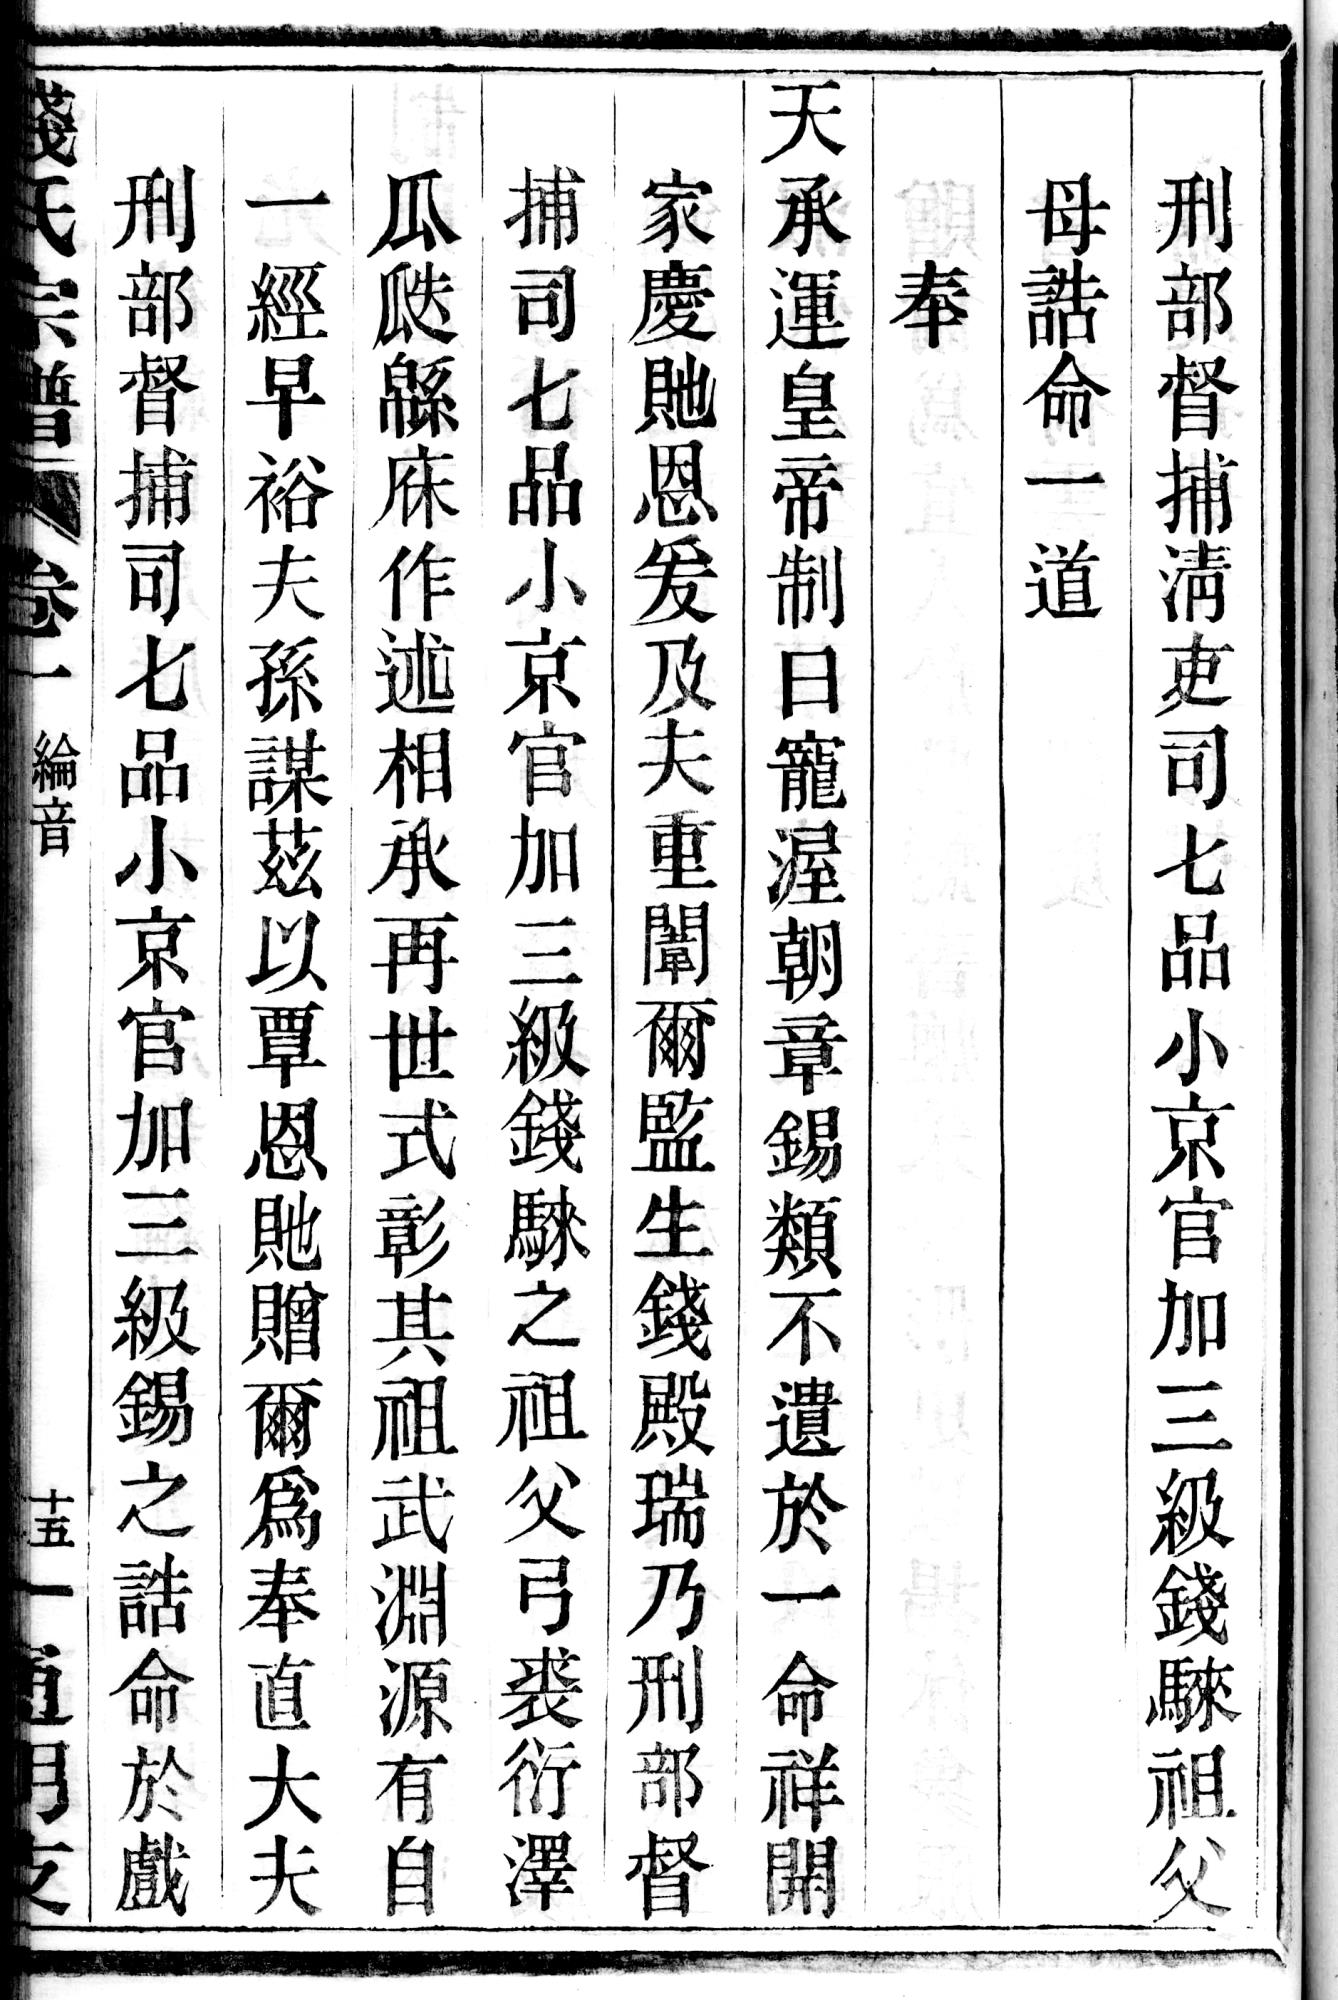 刑部督捕淸吏司七品小京官加三級錢騋祖父
母誥命一道
奉
天承運皇帝制曰寵渥朝章錫類不遺於一命祥開
家慶貤恩爰及夫重闈爾監生錢殿瑞乃刑部督
捕司七品小京官加三級錢騋之祖父弓裘衍澤
瓜瓞緜庥作述相承再世式彰其祖武淵源有自
一經早裕夫孫謀茲以覃恩貤贈爾爲奉直大夫
刑部督捕司七品小京官加三級錫之誥命於戲
錢氏宗譜 卷一 綸音 十五 一 通明支